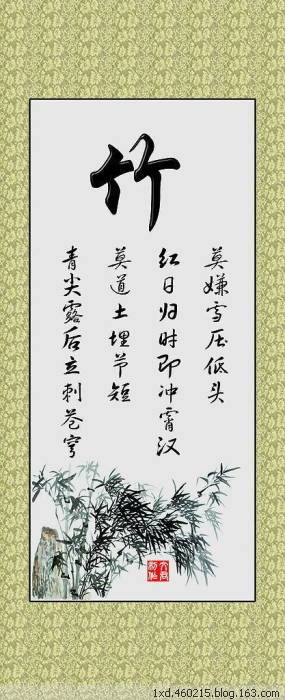 竹
莫嫌雪压低头
红日归时即冲霄汉
莫道土埋节短
青尖露后立刺苍穹
1xd.460215.blog.163.com